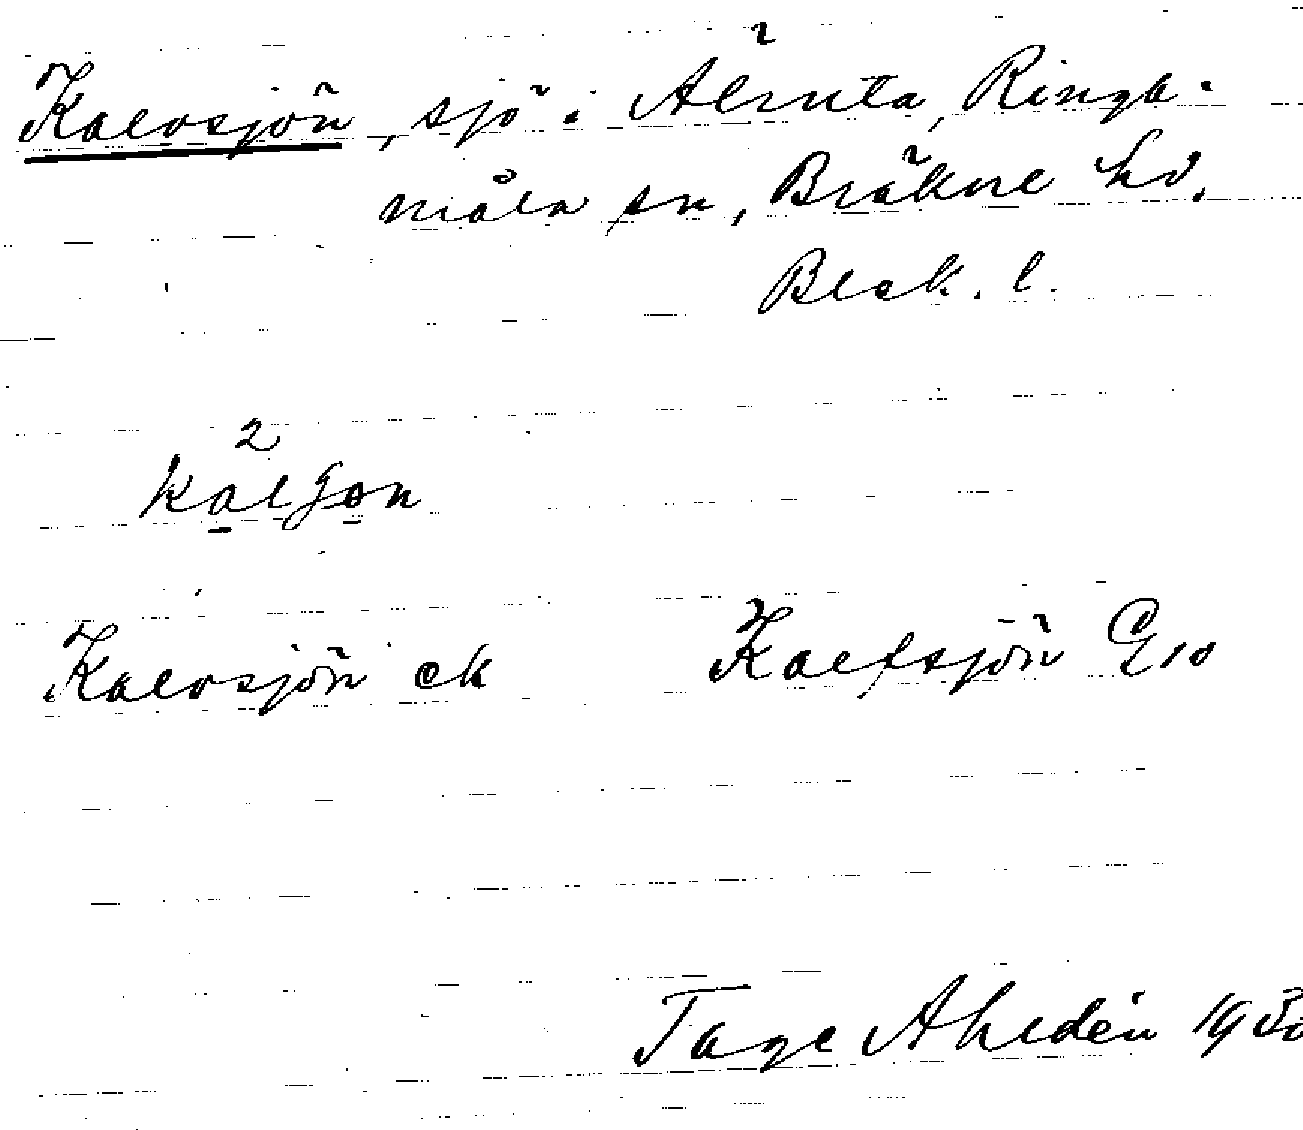 Kalvsjön, sjö i Älmta, Ringa-
måla sn, Bräkne hd.
Blek. l.
2
kalʃon
Kalvsjön ek Kalfsjön G10
Tage Ahldén 1930